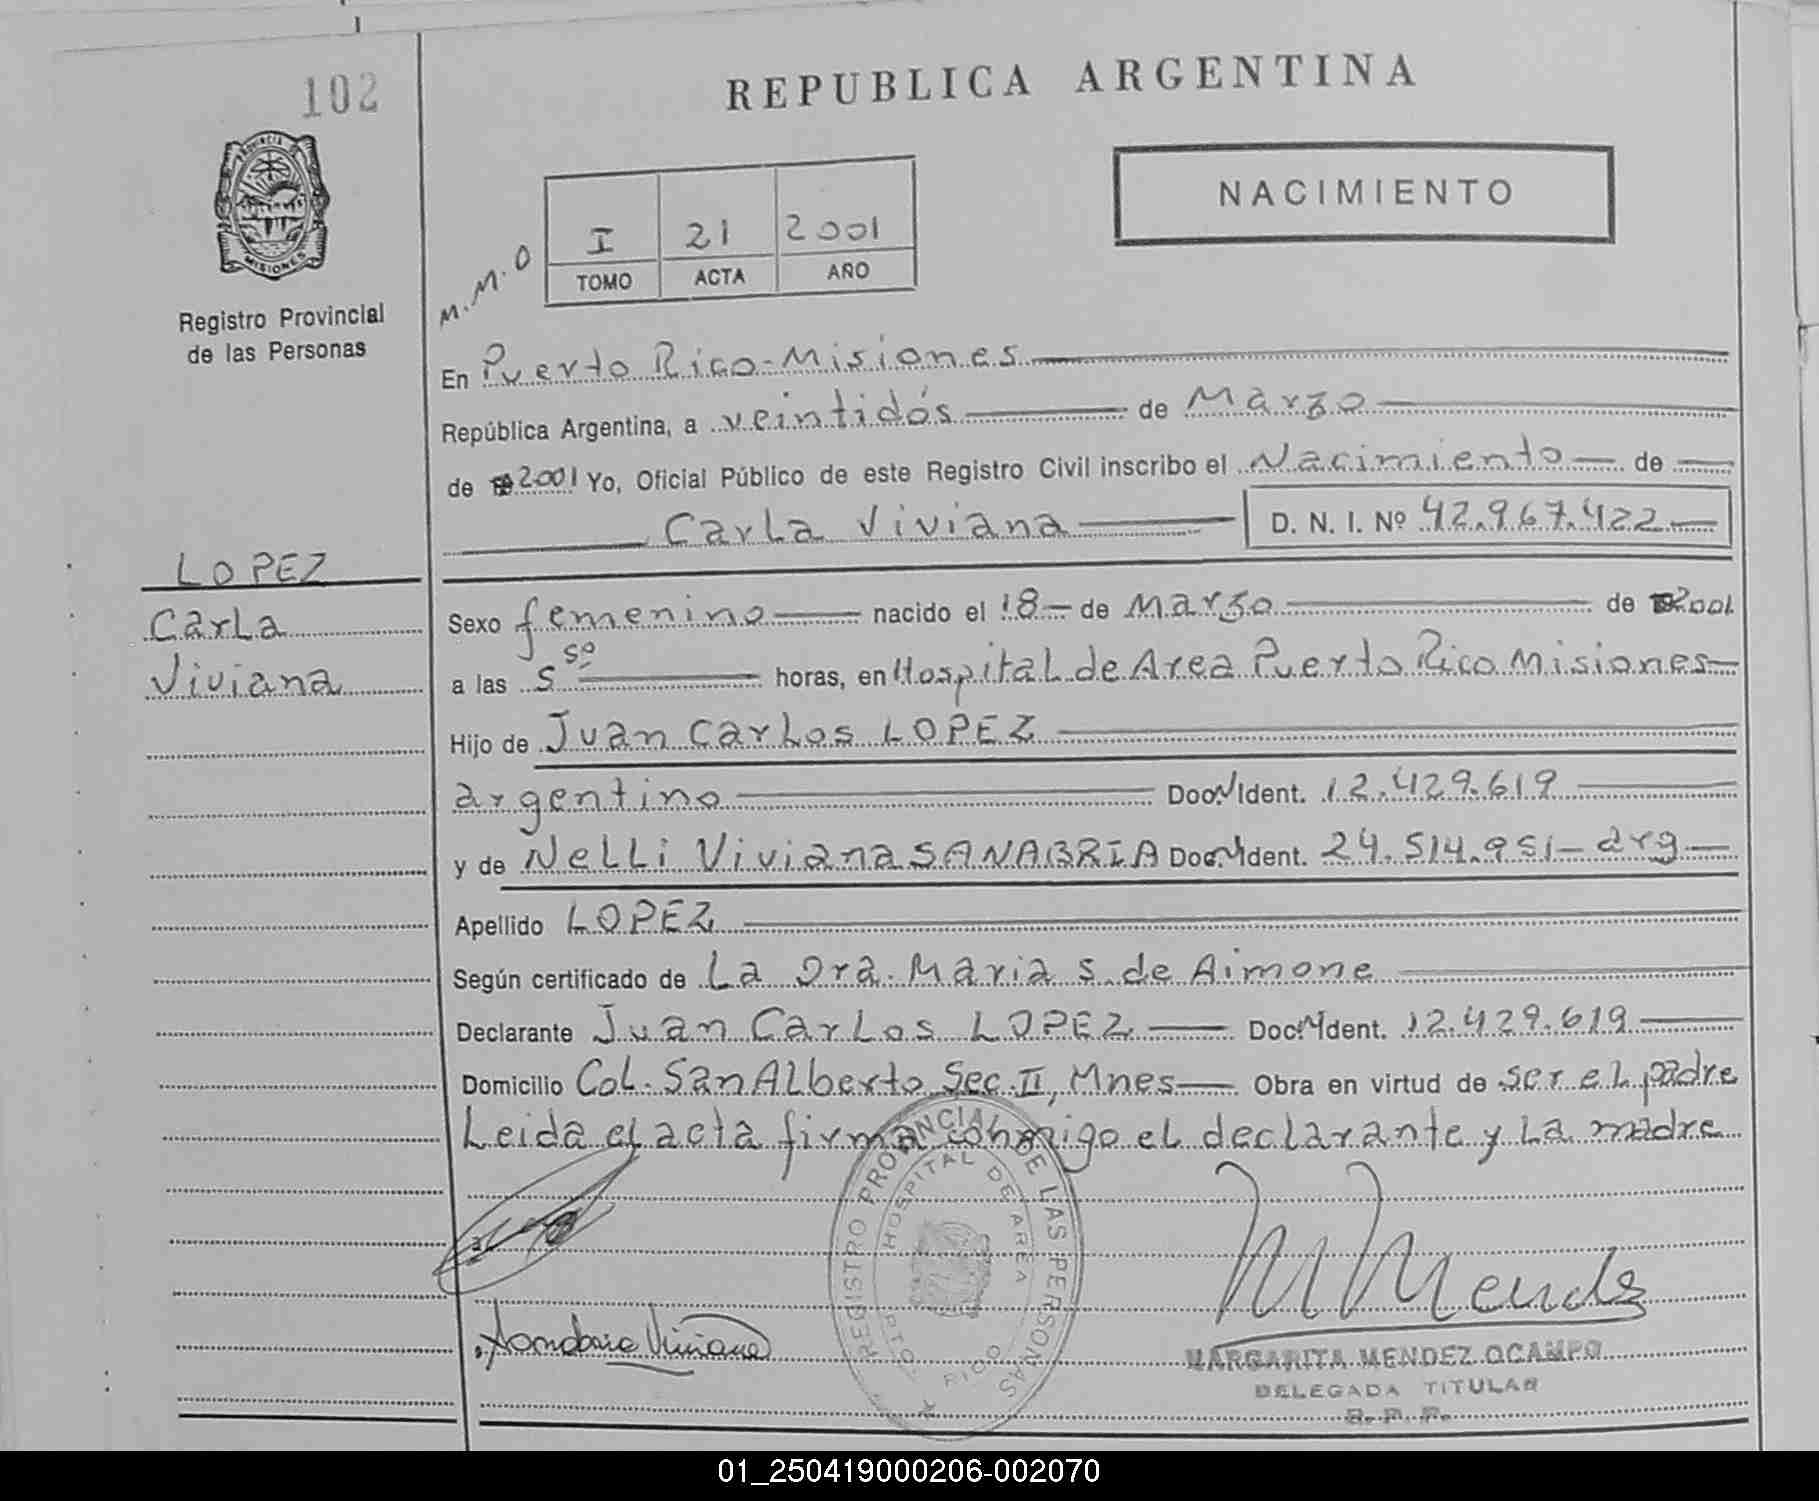 102
REPUBLICA ARGENTINA
PROVINCIA DE
MISIONES
Registro Provincial
de las Personas
M.M.O
I 21 2001
TOMO ACTA AÑO
NACIMIENTO
En Puerto Rico-Misiones
República Argentina, a veintidós de Marzo
de 2001 Yo, Oficial Público de este Registro Civil inscribo el Nacimiento de
Carla Viviana D. N. I. Nº 42.967.422
LOPEZ
Carla
Viviana
Sexo femenino nacido el 18 de Marzo de 2001
a las 5 50 horas, en Hospital de Area Puerto Rico Misiones
Hijo de Juan Carlos LOPEZ
argentino Doc. Ident. 12.429.619
y de Nelli Viviana SANABRIA Doc. Ident. 24.514.951 - arg
Apellido LOPEZ
Según certificado de La Dra. Maria S. de Aimone
Declarante Juan Carlos LOPEZ Doc. Ident. 12.429.619
Domicilio Col. San Alberto Sec. II, Mnes Obra en virtud de ser el padre
Leida el acta firma conmigo el declarante y La madre
REGISTRO PROVINCIAL DE LAS PERSONAS
HOSPITAL DE AREA
PTO. RICO
M Mendz
Viviana
MARGARITA MENDEZ OCAMPO
DELEGADA TITULAR
R. P. P.
01_250419000206-002070